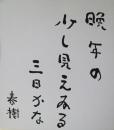 晩年の
少し見えある
三日かな
春樹